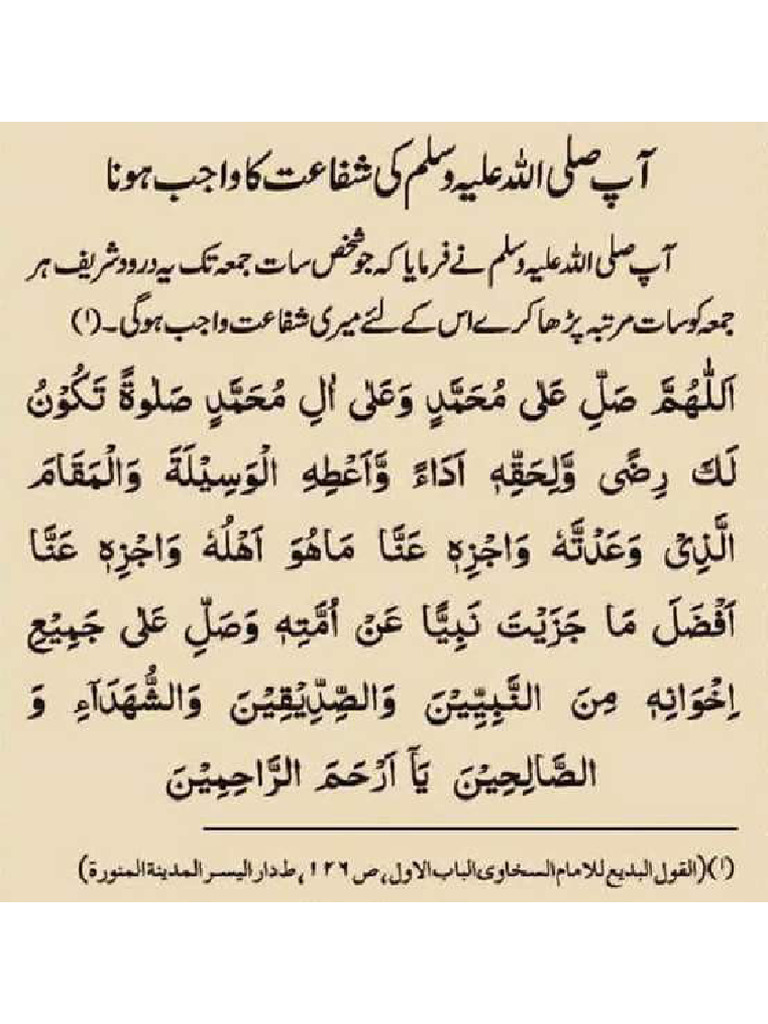 آپ صلی اللہ علیہ وسلم کی شفاعت کا واجب ہونا
آپ صلی اللہ علیہ وسلم نے فرمایا کہ جو شخص سات جمعہ تک یہ درود شریف ہر
جمعہ کو سات مرتبہ پڑھا کرے اس کے لئے میری شفاعت واجب ہوگی۔(۱)
اَللّٰهُمَّ صَلِّ عَلٰی مُحَمَّدٍ وَعَلٰی اٰلِ مُحَمَّدٍ صَلٰوةً تَكُوْنُ
لَكَ رِضًی وَّلِحَقِّهٖ اَدَاءً وَّاَعْطِهِ الْوَسِيْلَةَ وَالْمَقَامَ
الَّذِیْ وَعَدْتَّهٗ وَاجْزِهٖ عَنَّا مَاهُوَ اَهْلُهٗ وَاجْزِهٖ عَنَّا
اَفْضَلَ مَا جَزَيْتَ نَبِيًّا عَنْ اُمَّتِهٖ وَصَلِّ عَلٰی جَمِيْعِ
اِخْوَانِهٖ مِنَ النَّبِيِّيْنَ وَالصِّدِّيْقِيْنَ وَالشُّهَدَآءِ وَ
الصَّالِحِيْنَ يَآ اَرْحَمَ الرَّاحِمِيْنَ
(۱)(القول البدیع للامام السخاوی الباب الاول، ص ۱۲۶، ط دار الیسر المدینة المنورة)